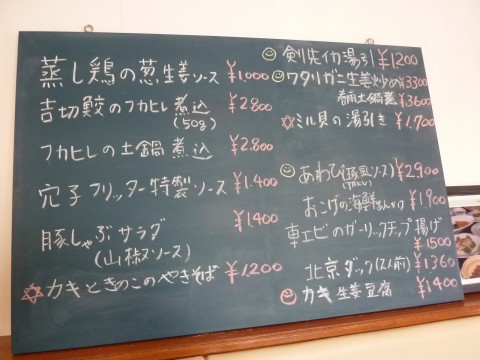 蒸し鶏の葱生姜ソース ¥1,000
吉切鮫のフカヒレ煮込 ¥2800
(50g)
フカヒレの土鍋煮込 ¥2.800
穴子フリッター特製ソース ¥1.400
豚しゃぶサラダ ¥1400
(山椒ソース)
カキときのこのやきそば ¥1.200
剣先イカ湯引 ¥1200
ワタリガニ生姜炒め ¥3300
春雨土鍋煮 ¥3600
ミル貝の湯引き ¥1,700
あわび ¥2900
おこげの海鮮あんかけ ¥1900
車エビのガーリックチップ揚げ
¥1500
北京ダック(2人前) ¥1360
カキ生姜豆腐 ¥1400